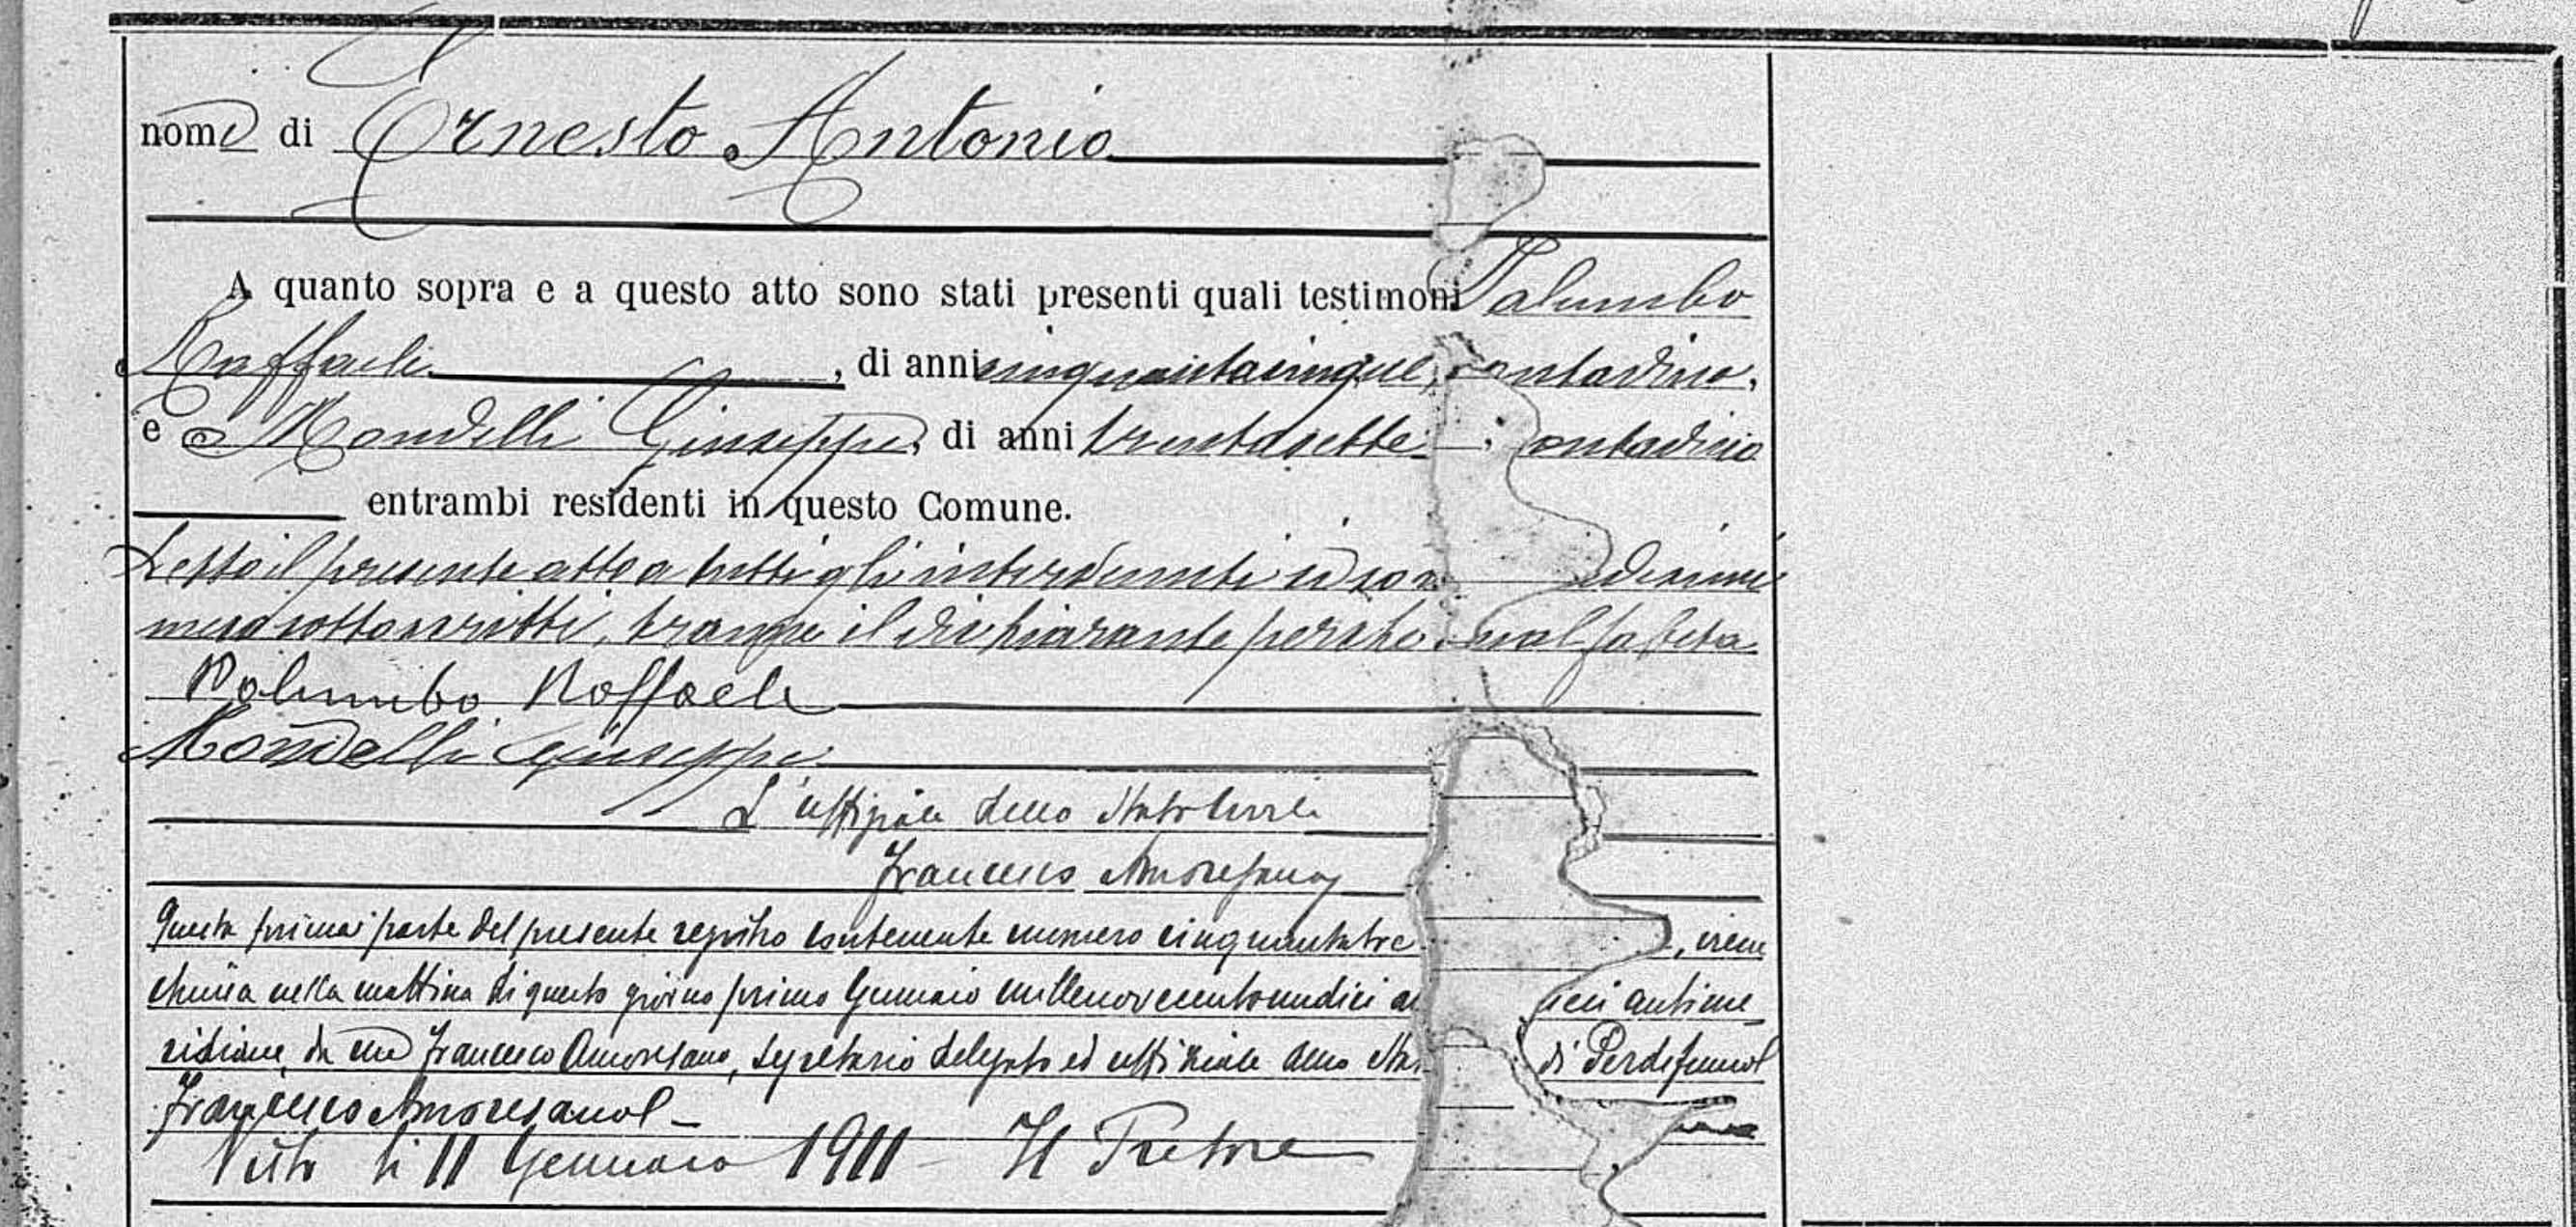 nome di Ernesto Antonio
A quanto sopra e a questo atto sono stati presenti quali testimoni Palumbo
Raffaele, di anni cinquantacinque, contadino,
e Mondelli Giuseppe, di anni trentasette, contadino
entrambi residenti in questo Comune.
Letto il presente atto a tutti gli intervenuti si son
meco sottoscritti, tranne il dichiarante perchè analfabeta
Palumbo Raffaele
Mondelli Giuseppe
L'uffiziale dello Stato Civile
Francesco Amoresano
Questa prima parte del presente registro contenente numero cinquantatre , viene
chiusa nella mattina di questo giorno primo Gennaio millenovecentoundici antime
ridiane, da me Francesco Amoresano, segretario delegato ed uffiziale dello Sta di Perdifumo
Francesco Amoresano
Visto li 11 Gennaio 1911 - Il Pretore